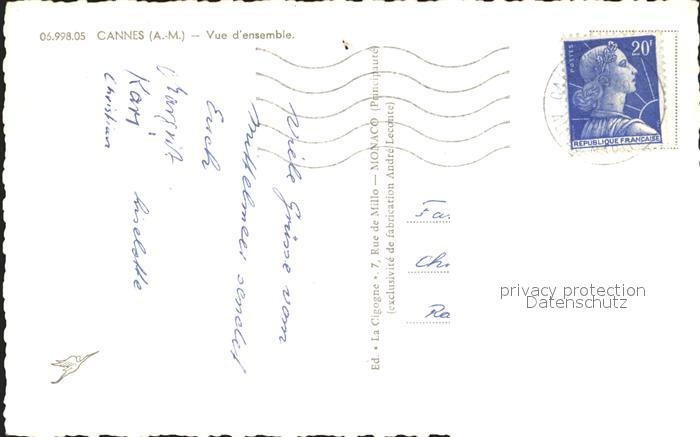 06.998.05 CANNES (A.-M.) — Vue d'ensemble.
Viele Grüsse vom
Mittelmeer sendet
Euch
Margrit
Kari Liselotte
Christian
Ed. • La Cigogne • 7, Rue de Millo — MONACO (Principauté)
(exclusivité de fabrication André Leconte)
POSTES
20F
REPUBLIQUE FRANÇAISE
Fa
Ch
Ra
privacy protection
Datenschutz